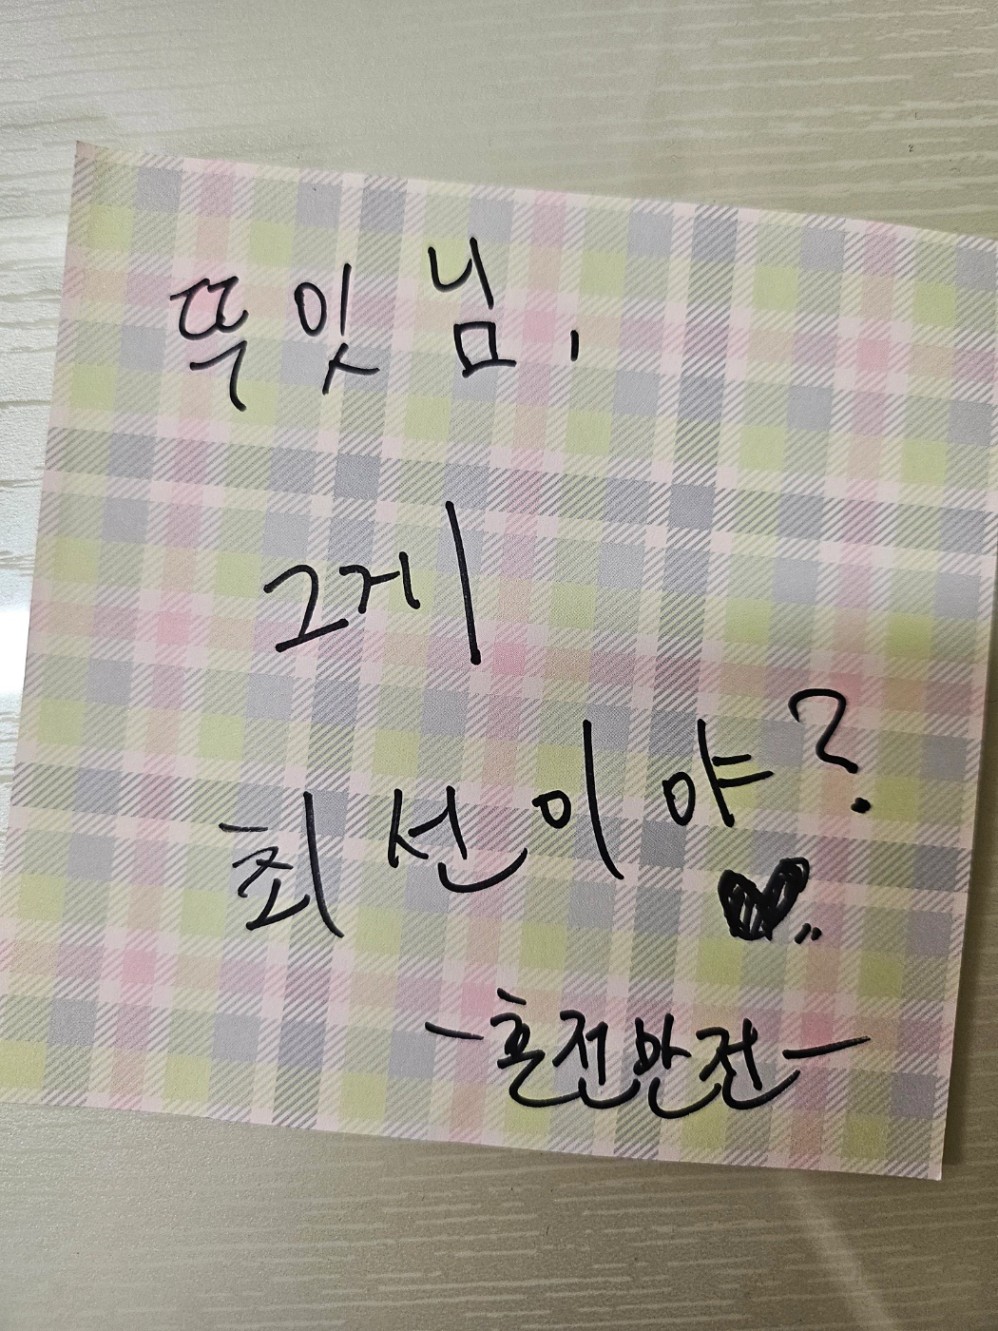 뚝잇님,
그게
최선이야?
-혼전반전-